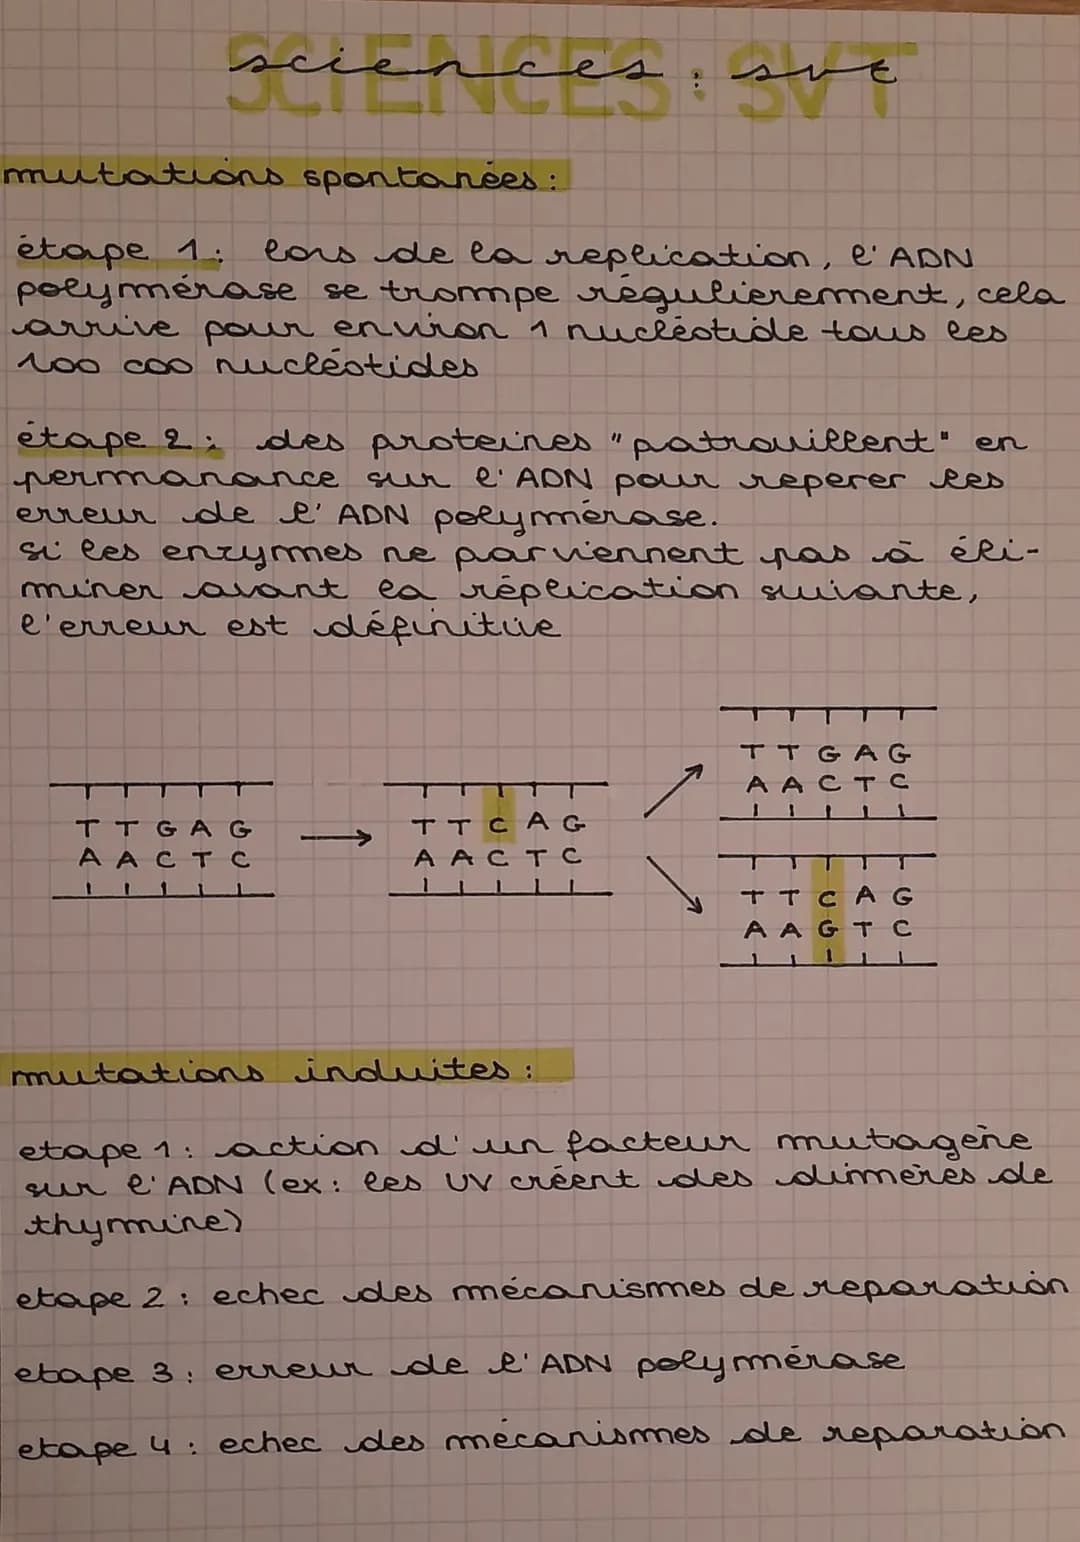 SCIENCES : SVT
sciences : svt
mutations spontanées :
étape 1 : lors de la replication, l'ADN
polymérase se trompe régulierement, cela
arrive pour environ 1 nucléotide tous les
100 000 nucléotides
étape 2 : des proteines "patrouillent" en
permanance sur l'ADN pour reperer les
erreur de l'ADN polymérase.
si les enzymes ne parviennent pas à éli-
miner avant la réplication suivante,
l'erreur est définitive
T T G A G
A A C T C
T T C A G
A A C T C
T T G A G
A A C T C
T T C A G
A A G T C
mutations induites :
etape 1 : action d'un facteur mutagène
sur l'ADN (ex : les UV créent des dimères de
thymine)
etape 2 : echec des mécanismes de reparation
etape 3 : erreur de l'ADN polymérase
etape 4 : echec des mécanismes de reparation